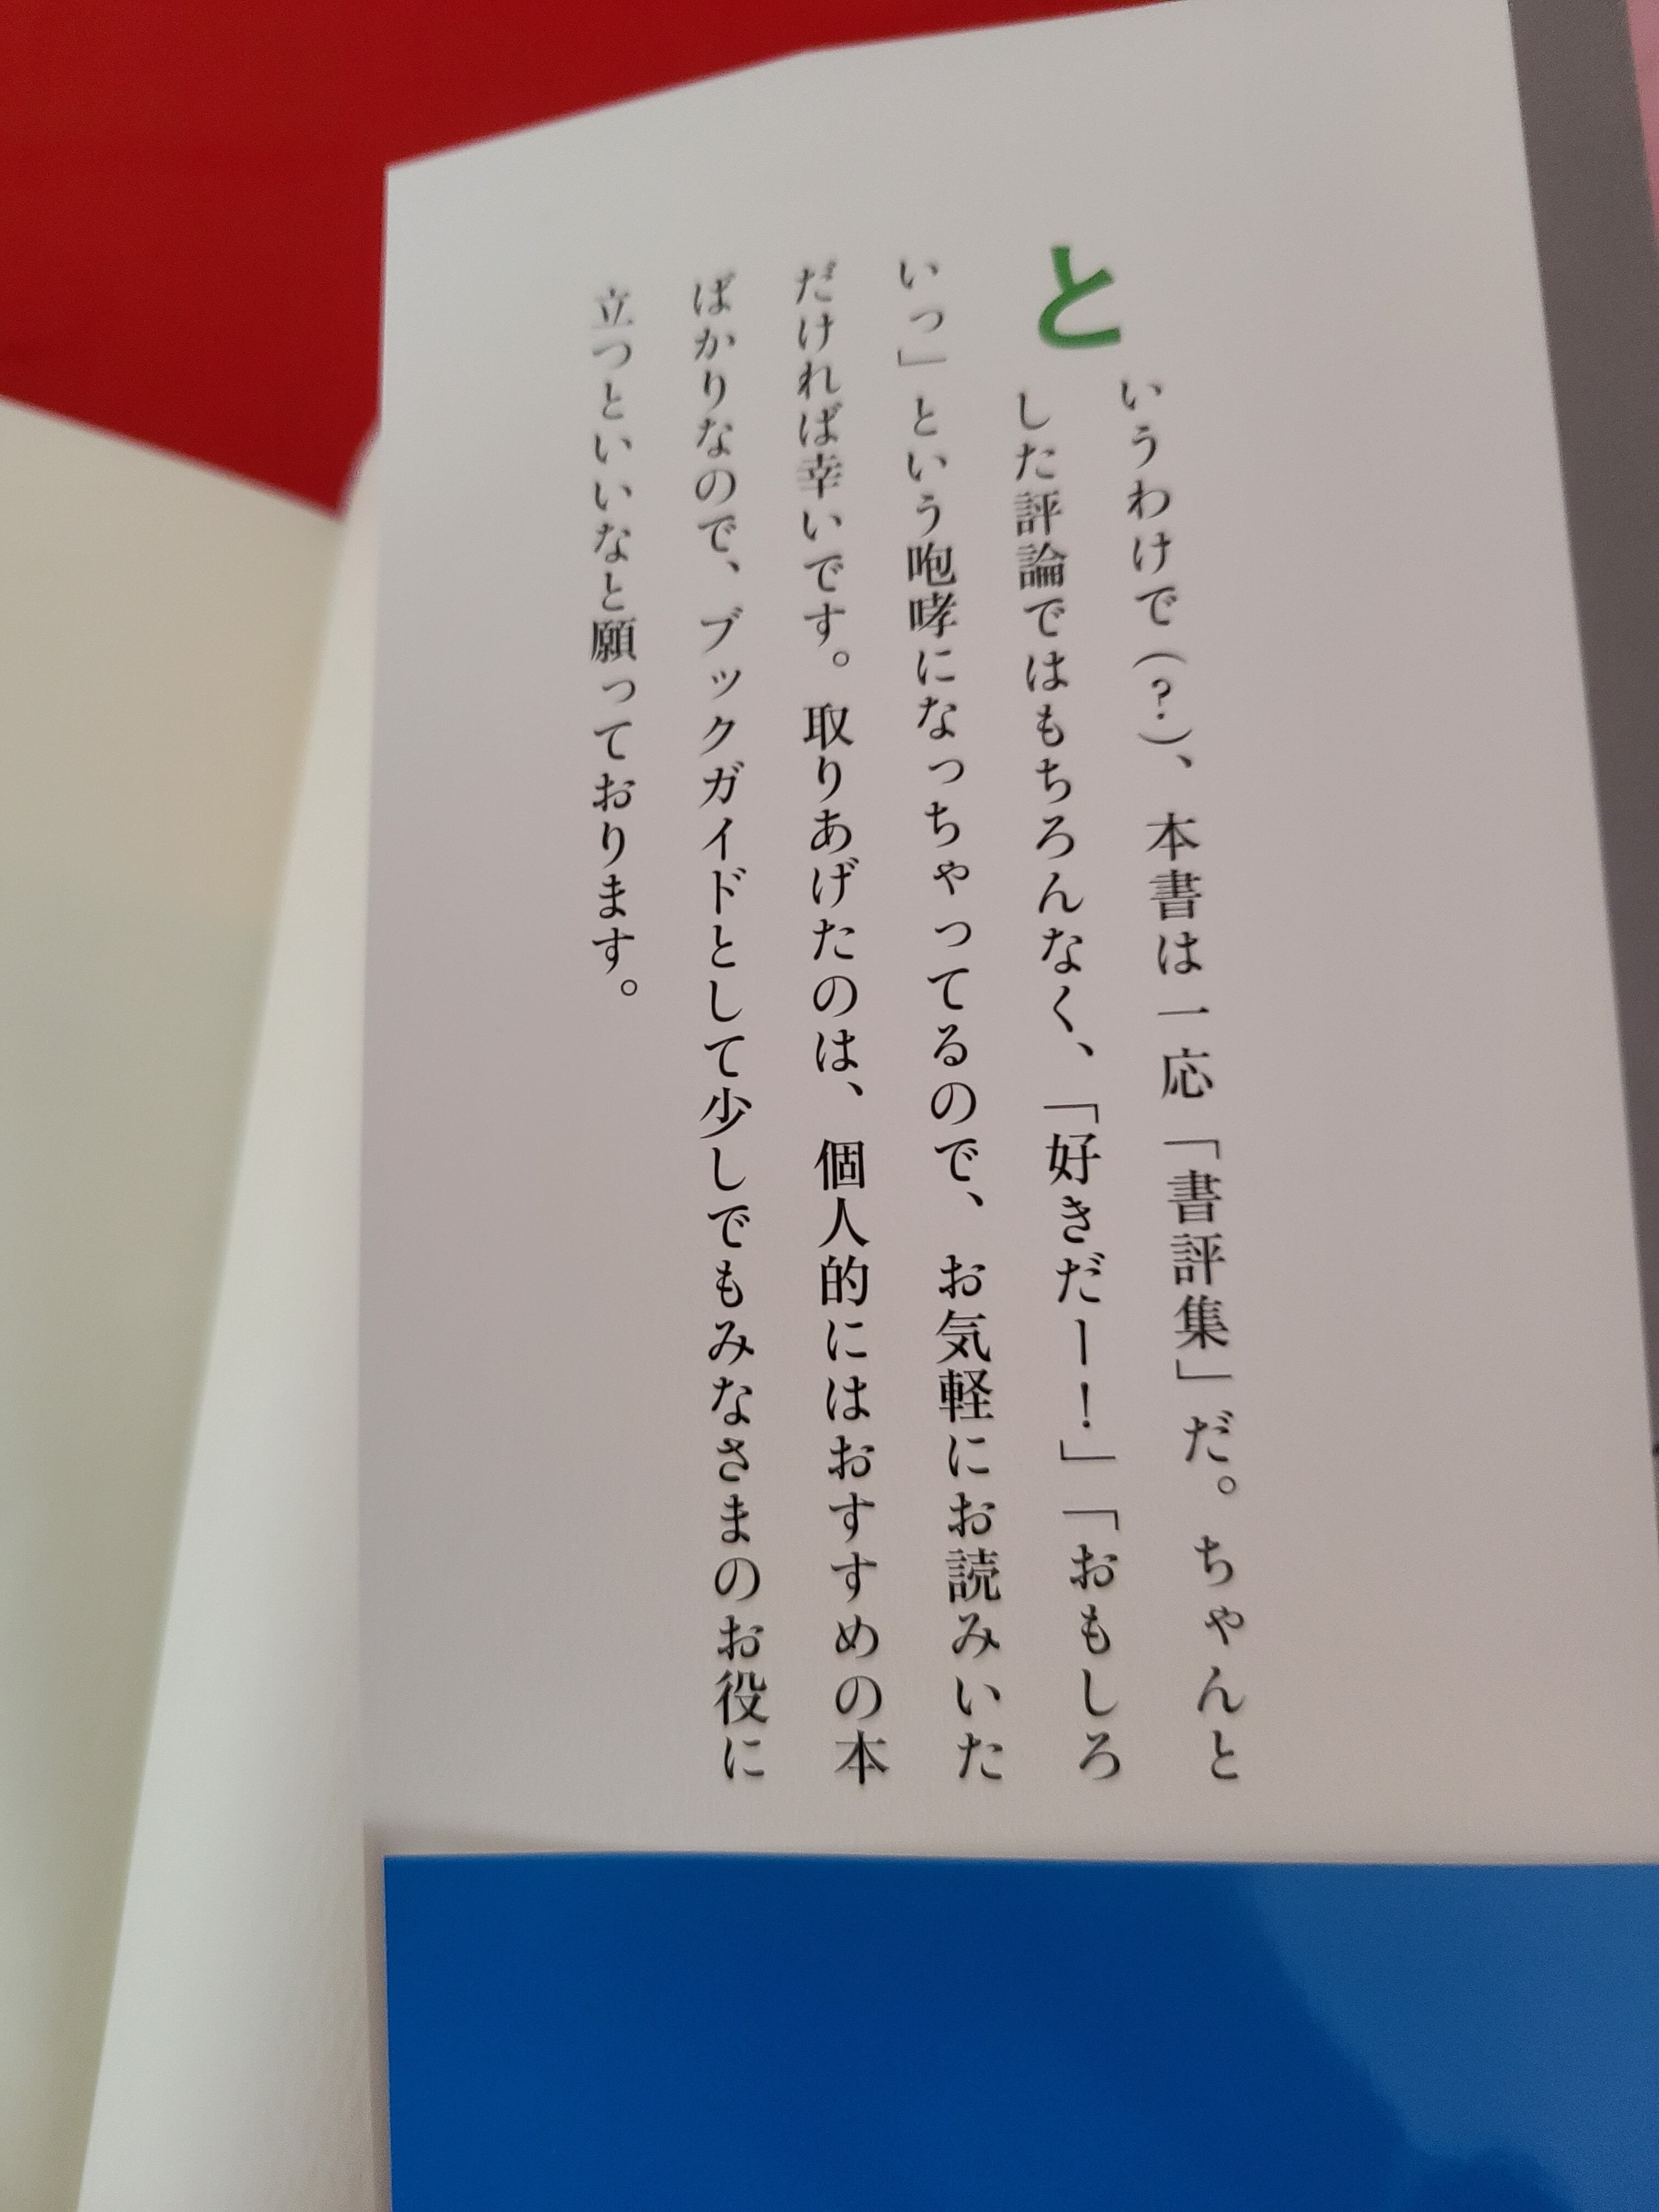 というわけで（？）、本書は一応「書評集」だ。ちゃんと
した評論ではもちろんなく、「好きだー！」「おもしろ
いっ」という咆哮になっちゃってるので、お気軽にお読みいた
だければ幸いです。取りあげたのは、個人的にはおすすめの本
ばかりなので、ブックガイドとして少しでもみなさまのお役に
立つといいなと願っております。